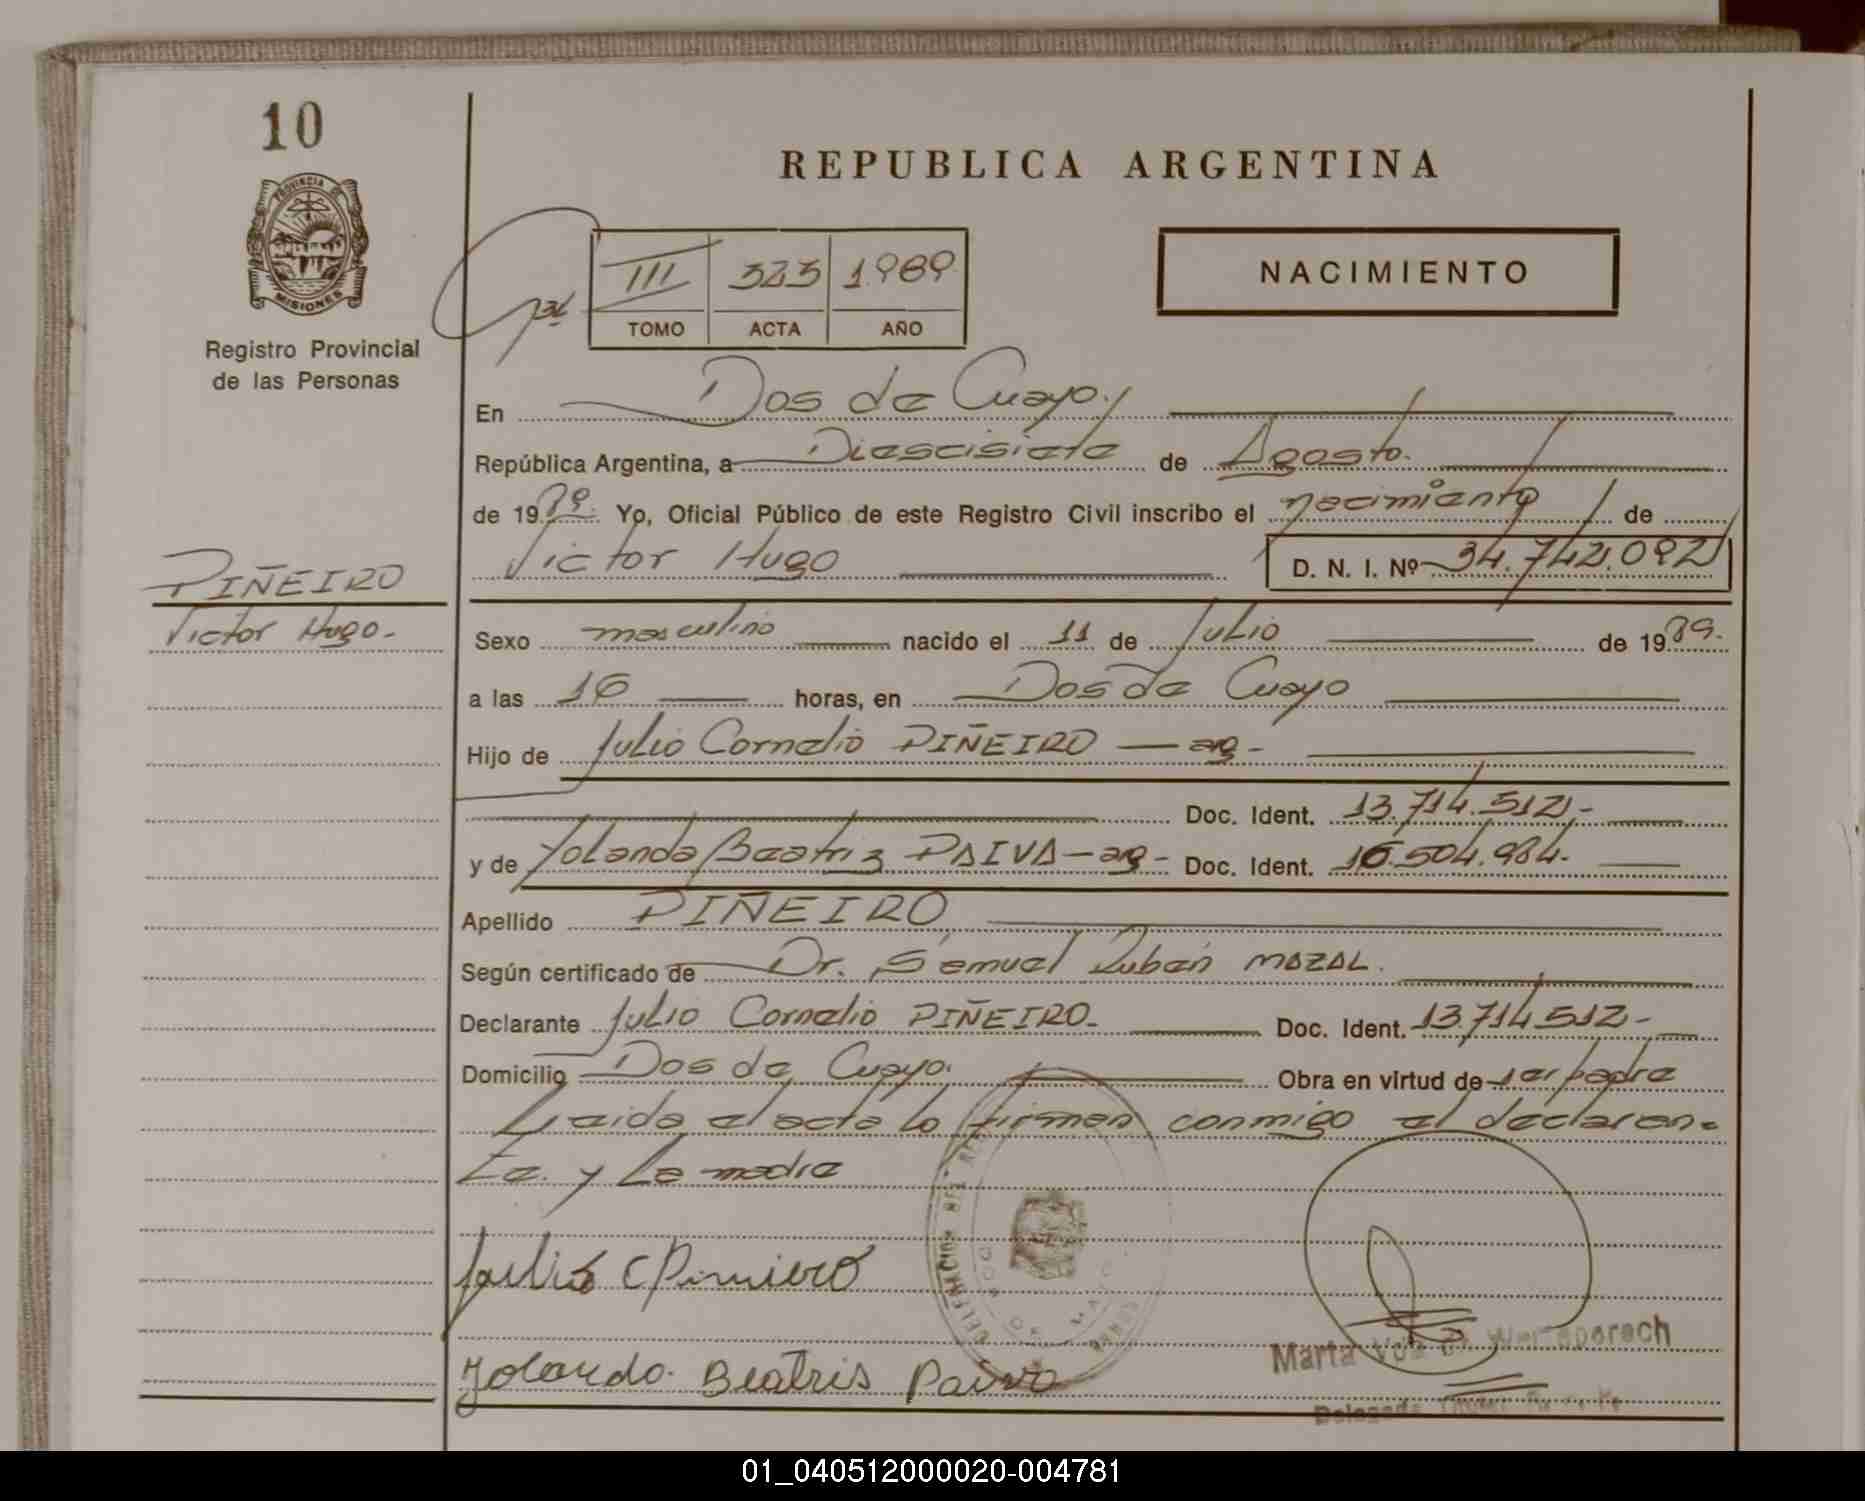 10
REPUBLICA ARGENTINA
PROVINCIA DE
MISIONES
III 323 1.989
NACIMIENTO
TOMO ACTA AÑO
Registro Provincial
de las Personas
En Dos de Cuayo.
República Argentina, a Diescisiete de Agosto.
de 1989. Yo, Oficial Público de este Registro Civil inscribo el nacimiento de
Victor Hugo D. N. I. Nº 34.742.092
PIÑEIRO
Victor Hugo.-
Sexo masculino nacido el 11 de Julio de 1989.
a las 16 horas, en Dos de Cuayo
Hijo de Julio Cornelio PIÑEIRO — arg-
Doc. Ident. 13.714.512,-
y de Yolanda Beatriz PAIVA - arg- Doc. Ident. 16.504.984.
Apellido PIÑEIRO
Según certificado de Dr. Samuel Rubén MAZAL.
Declarante Julio Cornelio PIÑEIRO.- Doc. Ident. 13.714.512-
Domicilio Dos de Cuayo. Obra en virtud de ser padre
Leida el acta la firman conmigo el declaran=
te. y la madre
Julio C Pinniero
DOS DE MAYO
Yolando. Beatris Paiva
Marta
Delegada
01_040512000020-004781